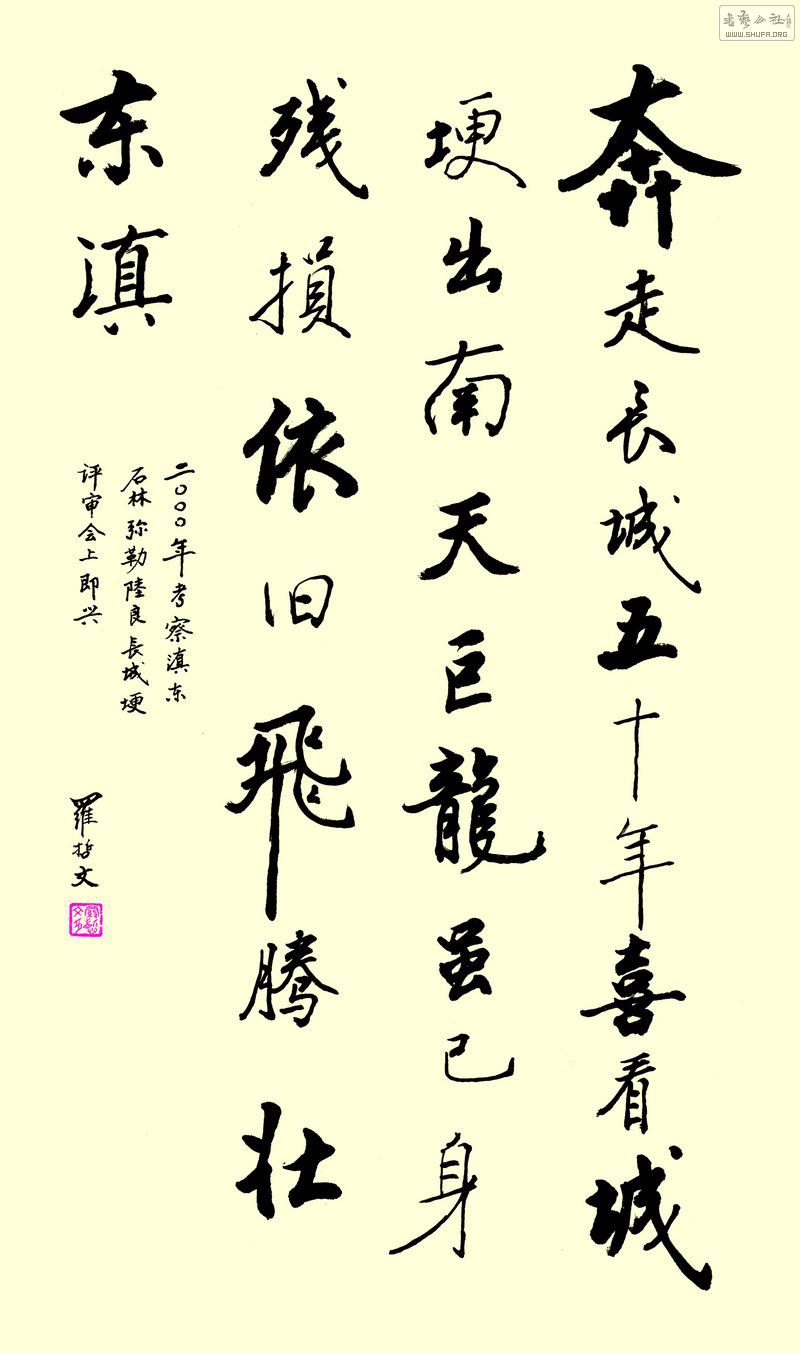 奔走長城五十年喜看城
埂出南天巨龍虽已身
残損依旧飛腾壮
东滇
二〇〇〇年考察滇东
石林弥勒陸良長城埂
评审会上即兴
羅哲文
書藝公社
WWW.SHUFA.ORG